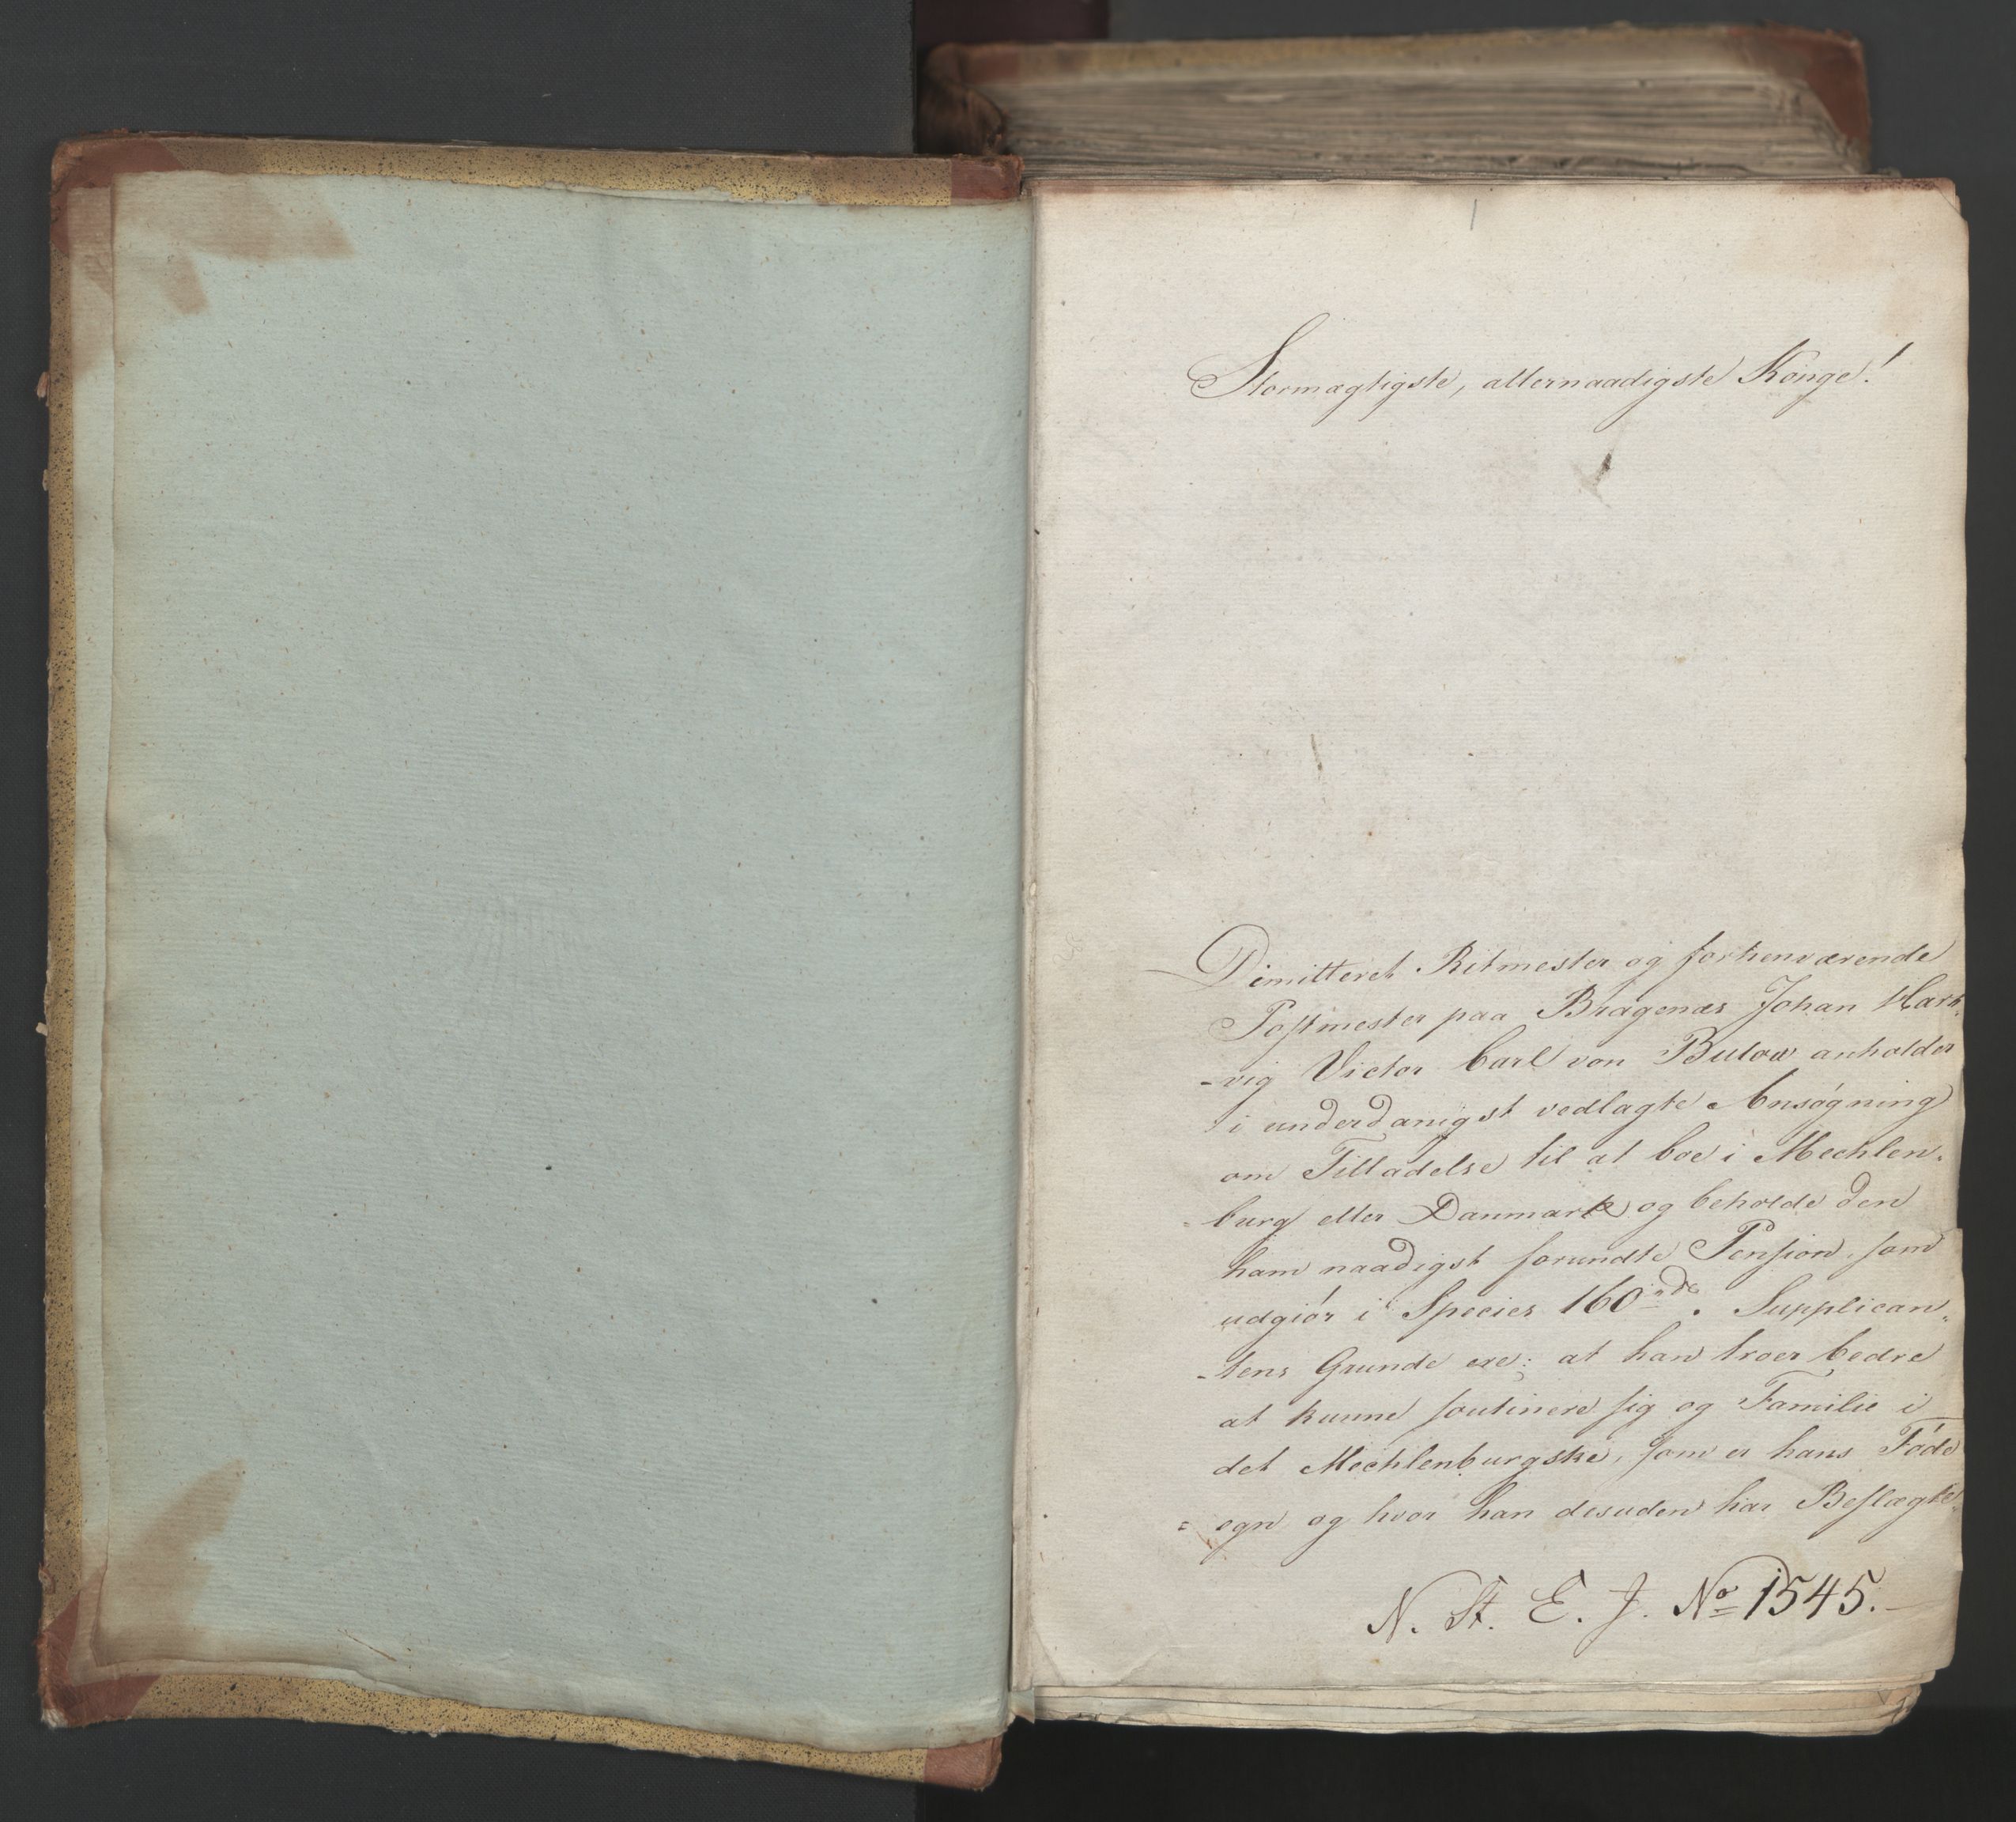 1
Stormægtigste, allernaadigste Konge!
Dimitteret Ritmester og forhenværende
Postmester paa Bragenæs Johan Hart-
-vig Victor Carl von Bulow anholder
i underdanigst vedlagte Ansøgning
om Tilladelse til at boe i Mechlen-
-burg eller Danmark og beholde den
ham naadigst forundte Pension, som
udgiør i Species 160 rdr. Supplican-
-tens Grunde ere: at han troer bedre
at kunne soutinere sig og Familie i
det Mechlenburgske, som er hans Føde
= egn og hvor han desuden har Beslægte-
N. St. E. J. No 1545.